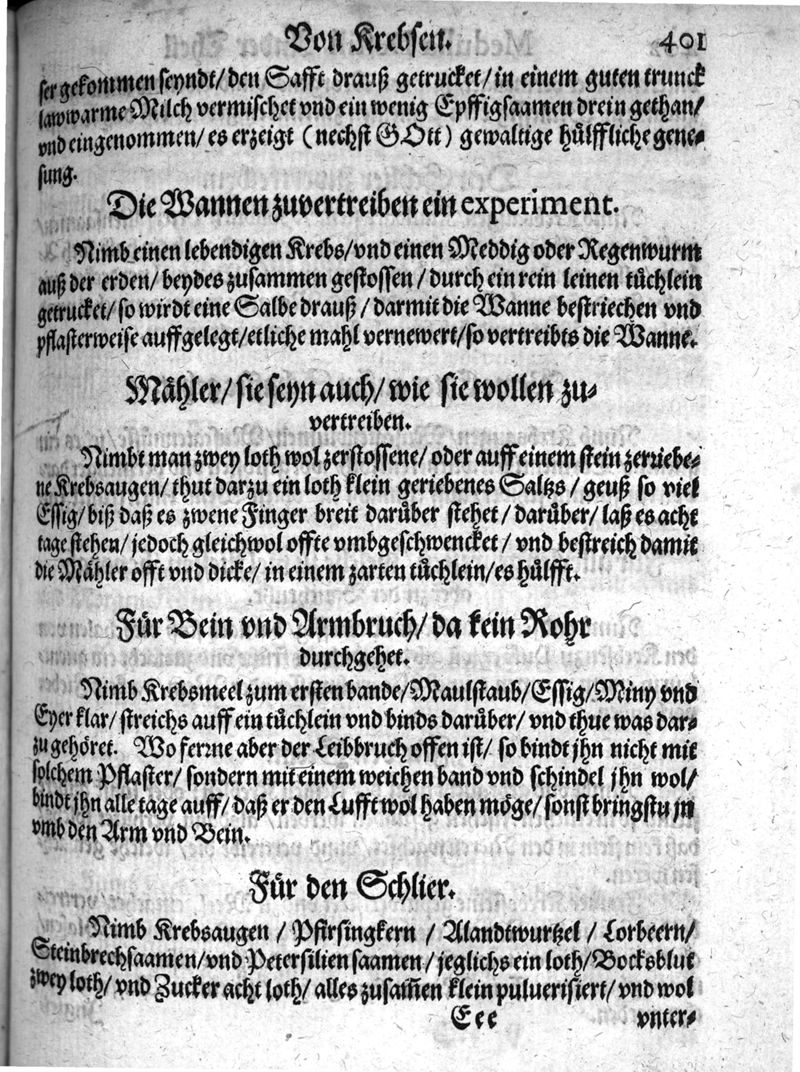 Von Krebsen. 401
ser gekommen seyndt/ den Safft drauß getrucket/ in einem guten trunck
lawwarme Milch vermischet vnd ein wenig Epffigsaamen drein gethan/
vnd eingenommen/ es erzeigt (nechst GOtt) gewaltige hülffliche gene-
sung.
Die Wannen zuvertreiben ein experiment.
Nimb einen lebendigen Krebs/ vnd einen Meddig oder Regenwurm
auß der erden/ beydes zusammen gestossen/ durch ein rein leinen tüchlein
getrucket/ so wirdt eine Salbe drauß/ darmit die Wanne bestriechen vnd
pflasterweise auffgelegt/ etliche mahl vernewert/ so vertreibts die Wanne.
Mähler/ sie seyn auch/ wie sie wollen zu-
vertreiben.
Nimbt man zwey loth wol zerstossene/ oder auff einem stein zerriebe-
ne Krebsaugen/ thut darzu ein loth klein geriebenes Saltzs/ geuß so viel
Essig/ biß daß es zwene Finger breit darüber stehet/ darüber/ laß es acht
tage stehen/ jedoch gleichwol offte vmbgeschwencket/ vnd bestreich damit
die Mähler offt vnd dicke/ in einem zarten tüchlein/ es hülfft.
Für Bein vnd Armbruch/ da kein Rohr
durchgehet.
Nimb Krebsmeel zum ersten bande/ Maulstaub/ Essig/ Miny vnd
Eyer klar/ streichs auff ein tüchlein vnd binds darüber/ vnd thue was dar-
zu gehöret. Wo ferrne aber der Leibbruch offen ist/ so bindt jhn nicht mit
solchem Pflaster/ sondern mit einem weichen band vnd schindel jhn wol/
bindt jhn alle tage auff/ daß er den Lufft wol haben möge/ sonst bringstu jn
vmb den Arm vnd Bein.
Für den Schlier.
Nimb Krebsaugen/ Pfirsingkern/ Alandtwurtzel/ Lorbeern/
Steinbrechsaamen/ vnd Petersilien saamen/ jeglichs ein loth/ Bocksblut
zwey loth/ vnd Zucker acht loth/ alles zusam̃en klein pulverisiert/ vnd wol
Eee vnter-